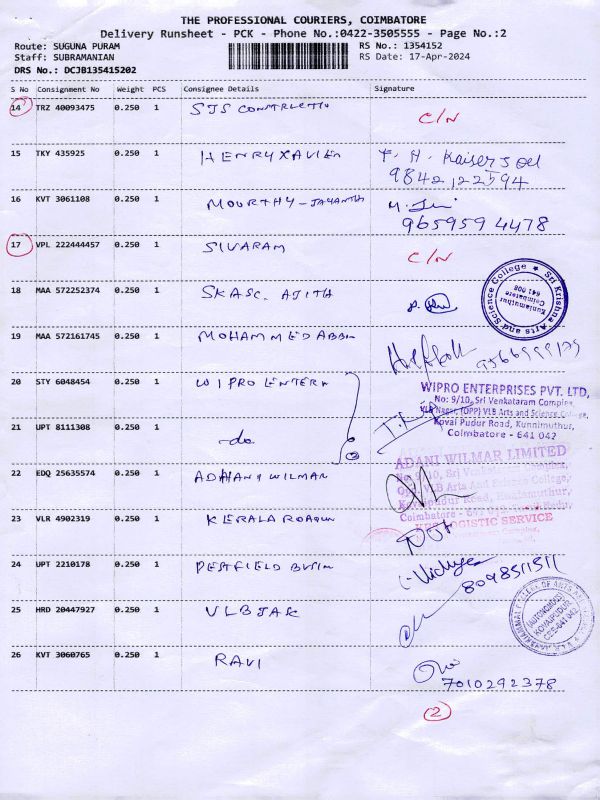 THE PROFESSIONAL COURIERS, COIMBATORE
Delivery Runsheet - PCK - Phone No.:0422-3505555 - Page No.:2
Route: SUGUNA PURAM
RS No.: 1354152
Staff: SUBRAMANIAN
RS Date: 17-Apr-2024
DRS No.: DCJB135415202
S No Consignment No Weight PCS Consignee Details Signature
14 TRZ 40093475 0.250 1 SJS CONSTRUCTIO C/N
15 TKY 435925 0.250 1 HENRYXAVIER
9842122594
16 KVT 3061108 0.250 1 MOURTHY-JAYANTHI
9659594478
17 VPL 222444457 0.250 1 SIVARAM C/N
18 MAA 572252374 0.250 1 SKASC. AJITH
Sri Krishna Arts and Science College
Kuniamuthur
Coimbatore
641 008
19 MAA 572161745 0.250 1 MOHAMMEDABBA
20 STY 6048454 0.250 1 WIPRO ENTERA
WIPRO ENTERPRISES PVT. LTD,
No: 9/10, Sri Venkataram Complex,
VLB Nagar, (OPP) VLB Arts and Science College,
Kovai Pudur Road, Kunnimuthur,
Coimbatore - 641 042
21 UPT 8111308 0.250 1 -do-
22 EDQ 25635574 0.250 1 ADHANI WILMAR
ADANI WILMAR LIMITED
No 9/10, Sri Complex,
Opp VLB Arts And Science College,
Kovaipudur Road,
Coimbatore -
LOGISTIC SERVICE
23 VLR 4902319 0.250 1 KERALA ROADW
24 UPT 2210178 0.250 1 PESTFIELD BUSIN
8098511511
25 HRD 20447927 0.250 1 VLBJAK
(AUTONOMOUS)
KOVAIPUDUR
CBE-641 042
26 KVT 3060765 0.250 1 RAVI
7010292378
2